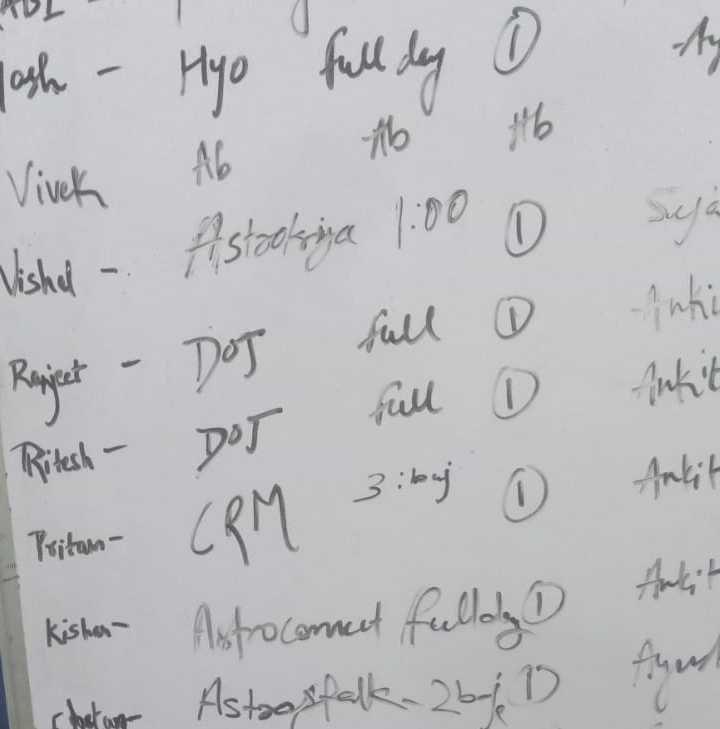 Hyo full day ①
Vivek Ab Ab Ab
Vishal - Astrokriya 1:00 ①
Ranjeet - DOJ full ① Anki
Ritesh - DOJ full ① Ankit
Pritam - CRM 3:baj ① Ankit
Kishan - Astroconnect fullday ① Ankit
Astrostalk - 2baje ① Ayush